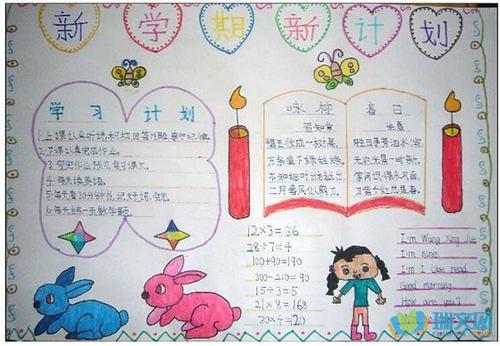 新学期新计划
学习计划
1.上课认真听讲,积极回答
2.下课认真完成作业。
4.每天读英语。
5.每天看30分钟书,记好词,好句
6.每天练一张数学题。
咏柳
贺知章
碧玉妆成一树高,
万条垂下绿丝绦。
不知细叶谁裁出,
二月春风似剪刀。
春日
朱熹
胜日寻芳泗水滨,
无边光景一时新。
等闲识得东风面,
万紫千红总是春。
12×3=36
28÷7=4
100+90=190
300-210=90
15÷3=5
21×8=168
30×4=120
I'm Wang Xing Jie
I'm nine
I'm I like read
Good morning
How are you?
瑞文网